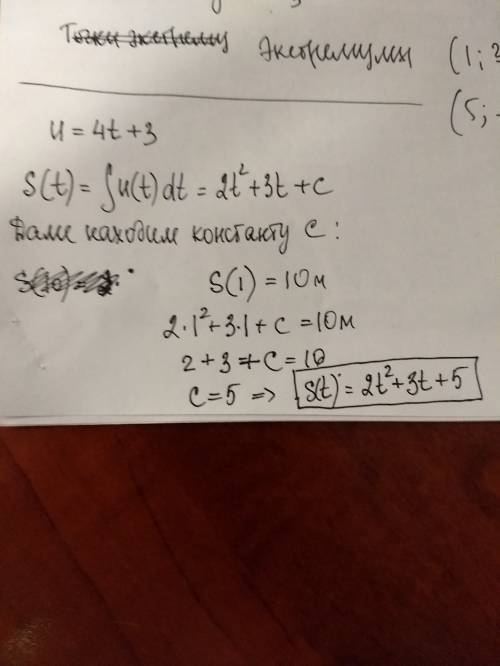 Точки экстремум Экстремумы (1; 3
(5; -
u = 4t + 3
S(t) = ∫u(t) dt = 2t² + 3t + C
Дале находим константу C :
S(1) = 10м
2·1² + 3·1 + C = 10м
2 + 3 + C = 10
C = 5 => S(t) = 2t² + 3t + 5